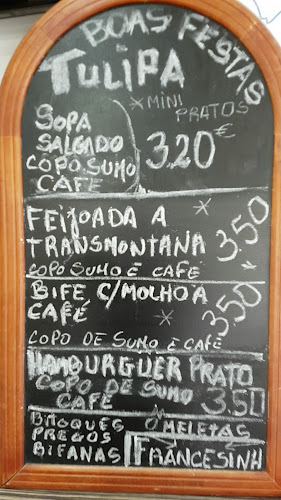 BOAS FESTAS
TULIPA
* MINI PRATOS
SOPA
SALGADO
COPO SUMO
CAFÉ
3.20 €
FEIJOADA A *
TRANSMONTANA
COPO SUMO E CAFÉ
3.50
BIFE C/MOLHO A
CAFÉ *
COPO DE SUMO E CAFÉ
3.50
HAMBURGUER PRATO
COPO DE SUMO
CAFÉ
3.50
BITOQUES OMELETAS
PREGOS
BIFANAS FRANCESINH